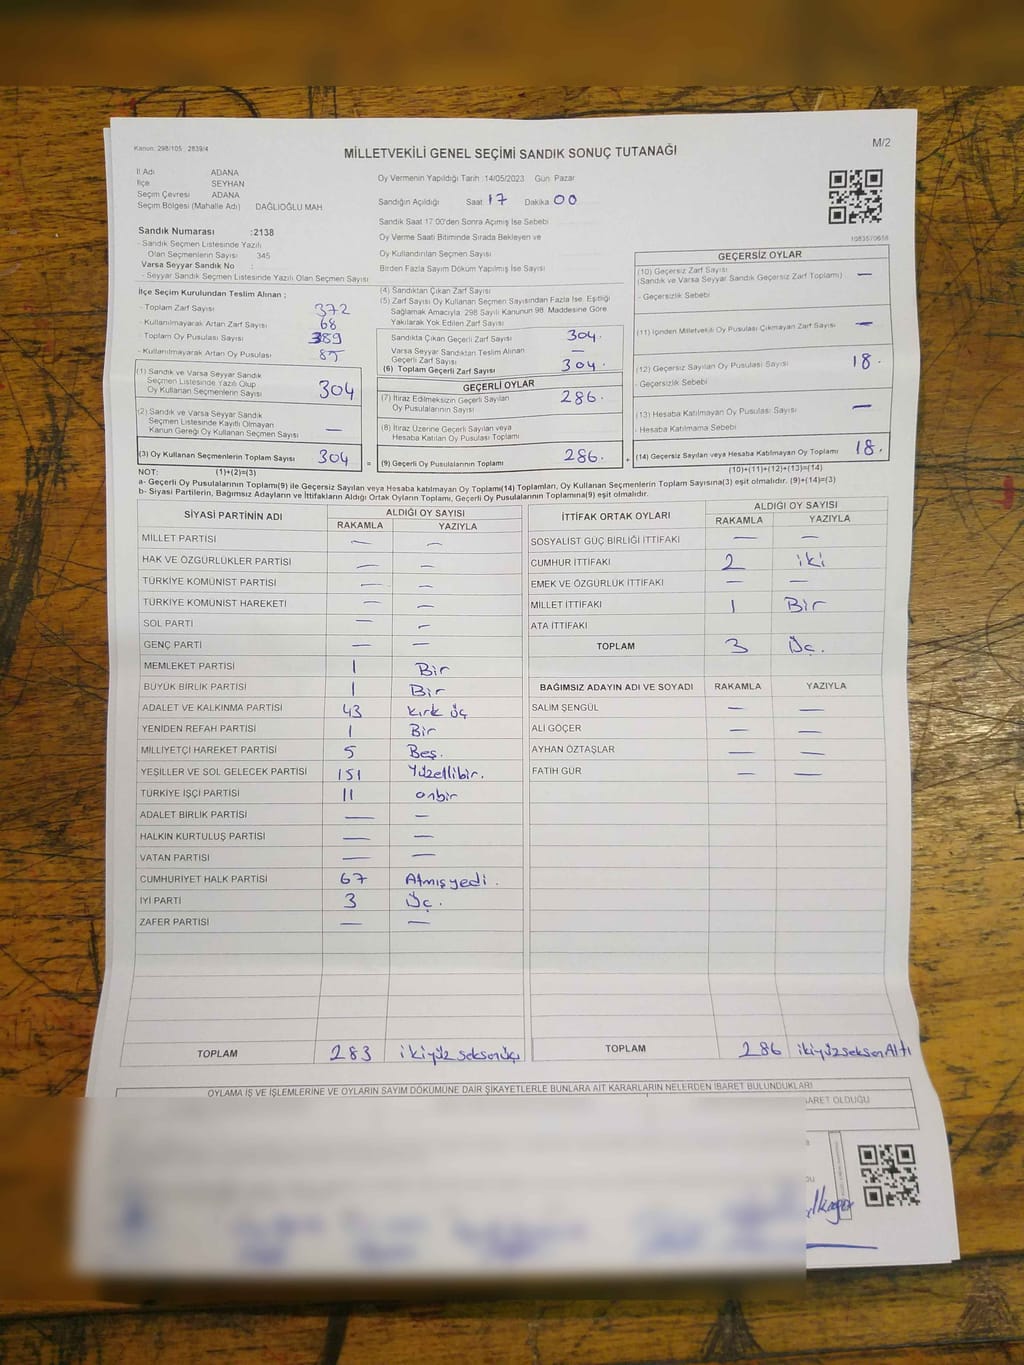 Kanun: 298/105 , 2839/4
M/2
MİLLETVEKİLİ GENEL SEÇİMİ SANDIK SONUÇ TUTANAĞI
İl Adı ADANA
İlçe SEYHAN
Seçim Çevresi ADANA
Seçim Bölgesi (Mahalle Adı) DAĞLIOĞLU MAH.
Oy Vermenin Yapıldığı Tarih :14/05/2023 Gün: Pazar
Sandığın Açıldığı Saat 17 Dakika 00
Sandık Saat 17:00'den Sonra Açımış İse Sebebi
Oy Verme Saati Bitiminde Sırada Bekleyen ve
Oy Kullandırılan Seçmen Sayısı
Birden Fazla Sayım Döküm Yapılmış İse Sayısı
Sandık Numarası :2138
- Sandık Seçmen Listesinde Yazılı
Olan Seçmenlerin Sayısı 345
Varsa Seyyar Sandık No :
- Seyyar Sandık Seçmen Listesinde Yazılı Olan Seçmen Sayısı
İlçe Seçim Kurulundan Teslim Alınan ;
- Toplam Zarf Sayısı 372
- Kullanılmayarak Artan Zarf Sayısı 68
- Toplam Oy Pusulası Sayısı 389
- Kullanılmayarak Artan Oy Pusulası 85
(1) Sandık ve Varsa Seyyar Sandık
Seçmen Listesinde Yazılı Olup
Oy Kullanan Seçmenlerin Sayısı 304
(2) Sandık ve Varsa Seyyar Sandık
Seçmen Listesinde Kayıtlı Olmayan
Kanun Gereği Oy Kullanan Seçmen Sayısı —
(3) Oy Kullanan Seçmenlerin Toplam Sayısı 304
(4) Sandıktan Çıkan Zarf Sayısı
(5) Zarf Sayısı Oy Kullanan Seçmen Sayısından Fazla İse, Eşitliği
Sağlamak Amacıyla, 298 Sayılı Kanunun 98. Maddesine Göre
Yakılarak Yok Edilen Zarf Sayısı
Sandıkta Çıkan Geçerli Zarf Sayısı 304.
Varsa Seyyar Sandıktan Teslim Alınan
Geçerli Zarf Sayısı —
(6) Toplam Geçerli Zarf Sayısı 304.
GEÇERLİ OYLAR
(7) İtiraz Edilmeksizin Geçerli Sayılan
Oy Pusulalarının Sayısı 286.
(8) İtiraz Üzerine Geçerli Sayılan veya
Hesaba Katılan Oy Pusulası Toplamı
= (9) Geçerli Oy Pusulalarının Toplamı 286.
1083570656
GEÇERSİZ OYLAR
(10) Geçersiz Zarf Sayısı
(Sandık ve Varsa Seyyar Sandık Geçersiz Zarf Toplamı) —
- Geçersizlik Sebebi
(11) İçinden Milletvekili Oy Pusulası Çıkmayan Zarf Sayısı —
(12) Geçersiz Sayılan Oy Pusulası Sayısı 18.
- Geçersizlik Sebebi
(13) Hesaba Katılmayan Oy Pusulası Sayısı —
- Hesaba Katılmama Sebebi
+ (14) Geçersiz Sayılan veya Hesaba Katılmayan Oy Toplamı 18.
NOT: (1)+(2)=(3)
(10)+(11)+(12)+(13)=(14)
a- Geçerli Oy Pusulalarının Toplamı(9) ile Geçersiz Sayılan veya Hesaba Katılmayan Oy Toplamı(14) Toplamları, Oy Kullanan Seçmenlerin Toplam Sayısına(3) eşit olmalıdır. (9)+(14)=(3)
b- Siyasi Partilerin, Bağımsız Adayların ve İttifakların Aldığı Ortak Oyların Toplamı, Geçerli Oy Pusulalarının Toplamına(9) eşit olmalıdır.
SİYASİ PARTİNİN ADI ALDIĞI OY SAYISI
RAKAMLA YAZIYLA
MİLLET PARTİSİ — —
HAK VE ÖZGÜRLÜKLER PARTİSİ — —
TÜRKİYE KOMÜNİST PARTİSİ — —
TÜRKİYE KOMÜNİST HAREKETİ — —
SOL PARTİ — —
GENÇ PARTİ — —
MEMLEKET PARTİSİ 1 Bir
BÜYÜK BİRLİK PARTİSİ 1 Bir
ADALET VE KALKINMA PARTİSİ 43 Kırk üç
YENİDEN REFAH PARTİSİ 1 Bir
MİLLİYETÇİ HAREKET PARTİSİ 5 Beş.
YEŞİLLER VE SOL GELECEK PARTİSİ 151 Yüzellibir.
TÜRKİYE İŞÇİ PARTİSİ 11 onbir
ADALET BİRLİK PARTİSİ — —
HALKIN KURTULUŞ PARTİSİ — —
VATAN PARTİSİ — —
CUMHURİYET HALK PARTİSİ 67 Atmışyedi.
İYİ PARTİ 3 Üç.
ZAFER PARTİSİ — —
TOPLAM 283 ikiyüz seksenüç
İTTİFAK ORTAK OYLARI ALDIĞI OY SAYISI
RAKAMLA YAZIYLA
SOSYALİST GÜÇ BİRLİĞİ İTTİFAKI — —
CUMHUR İTTİFAKI 2 iki
EMEK VE ÖZGÜRLÜK İTTİFAKI — —
MİLLET İTTİFAKI 1 Bir
ATA İTTİFAKI
TOPLAM 3 Üç.
BAĞIMSIZ ADAYIN ADI VE SOYADI RAKAMLA YAZIYLA
SALİM ŞENGÜL — —
ALİ GÖÇER — —
AYHAN ÖZTAŞLAR — —
FATİH GÜR — —
TOPLAM 286 ikiyüzseksenAltı
OYLAMA İŞ VE İŞLEMLERİNE VE OYLARIN SAYIM DÖKÜMÜNE DAİR ŞİKAYETLERLE BUNLARA AİT KARARLARIN NELERDEN İBARET BULUNDUKLARI
BARET OLDUĞU